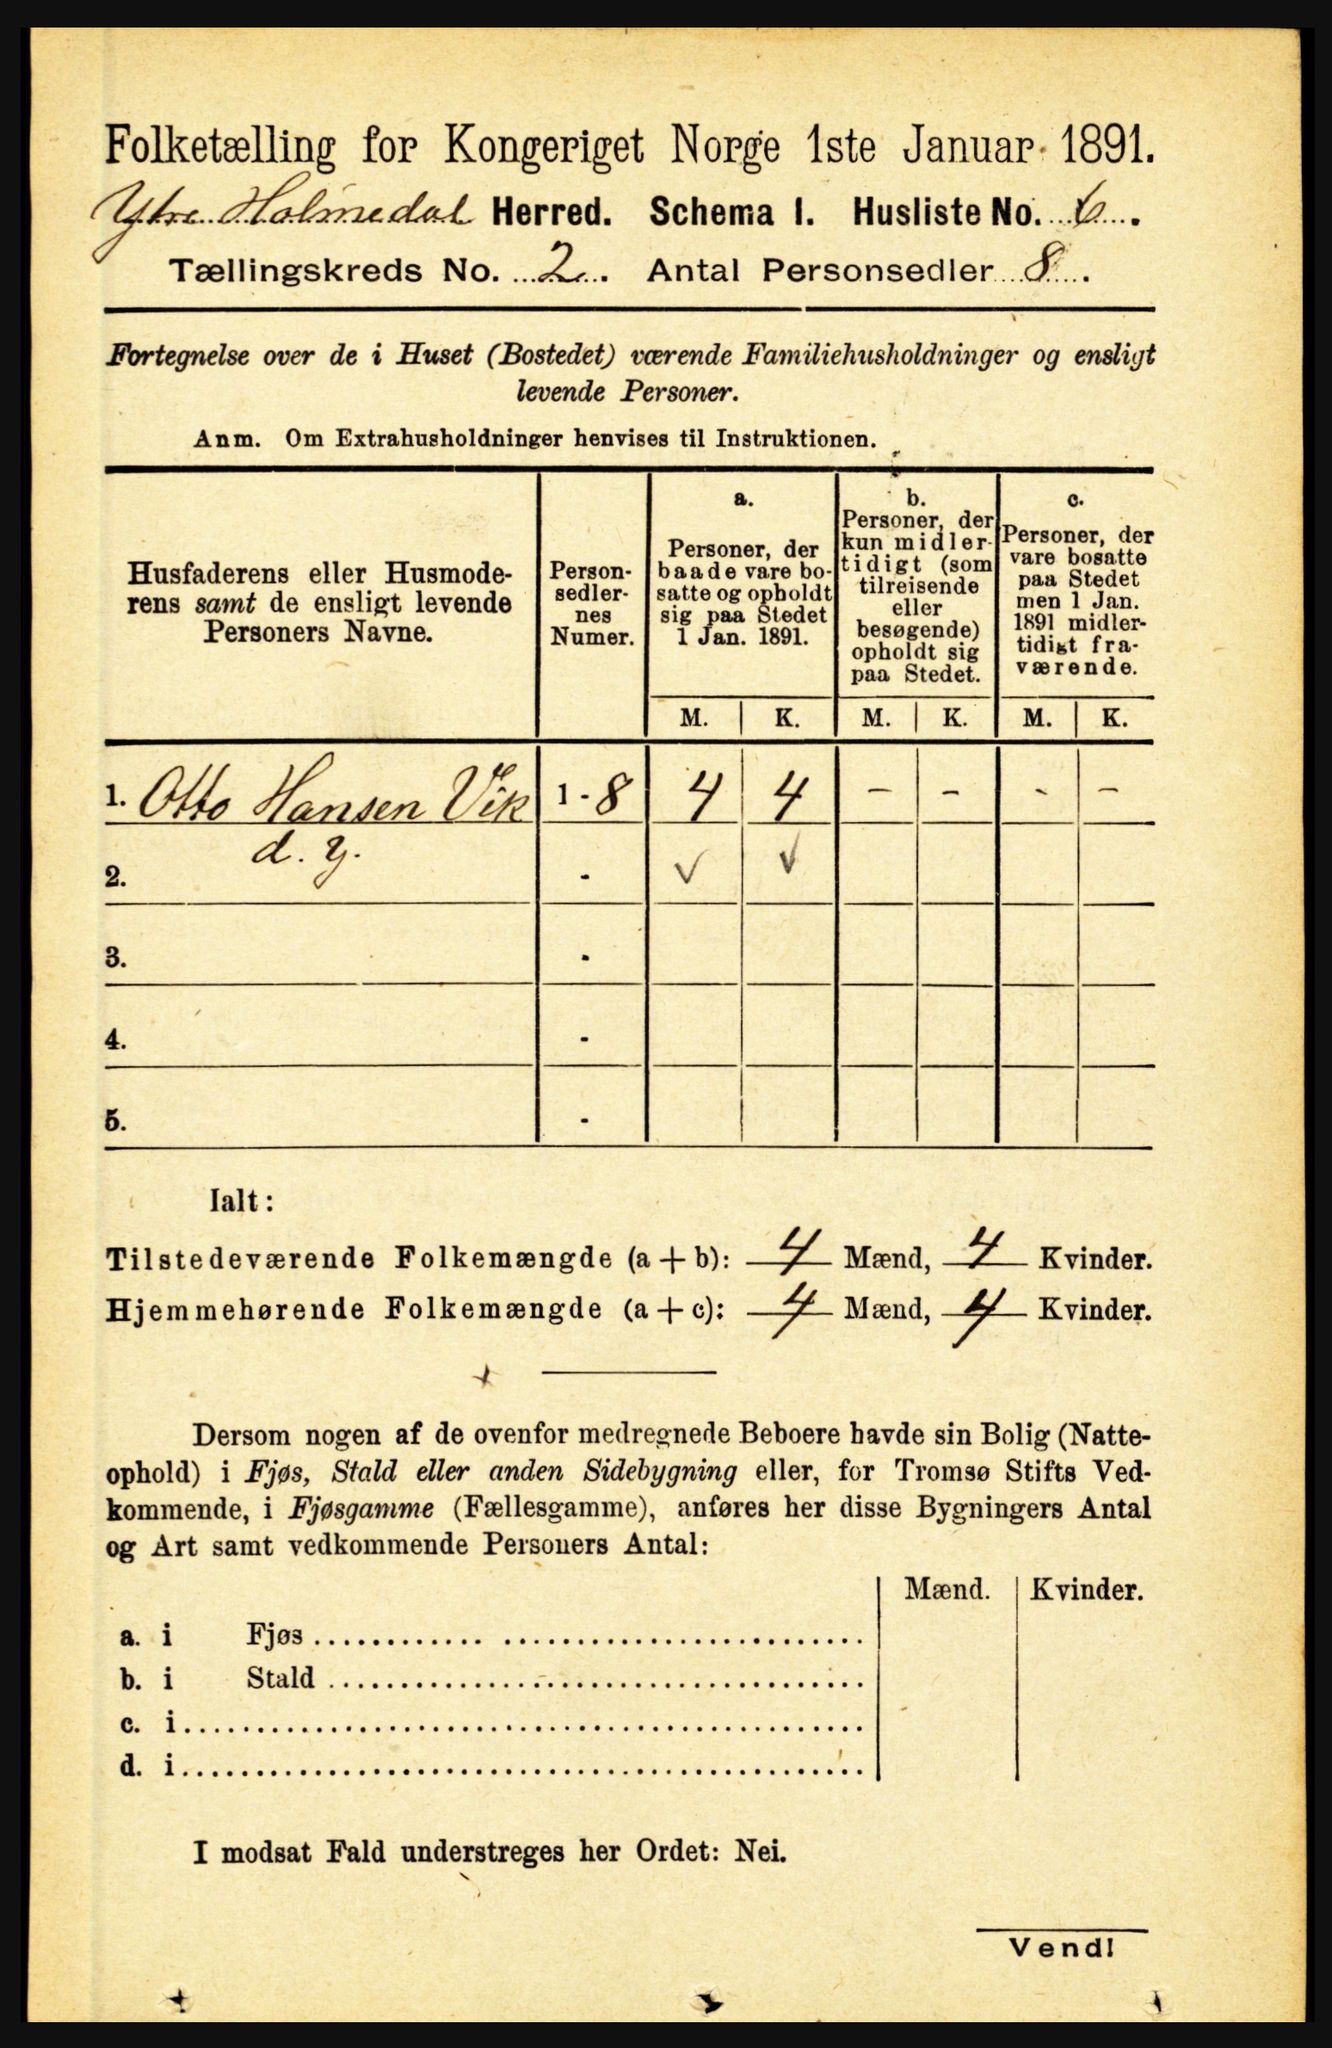 Folketælling for Kongeriget Norge 1ste Januar 1891.
Ytre Holmedal Herred. Schema 1. Husliste No. 6.
Tællingskreds No. 2. Antal Personsedler 8.
Fortegnelse over de i Huset (Bostedet) værende Familiehusholdninger og ensligt
levende Personer.
Anm. Om Extrahusholdninger henvises til Instruktionen.
Husfaderens eller Husmode-
rens samt de ensligt levende
Personers Navne.
Person-
sedler-
nes
Numer.
a.
Personer, der
baade vare bo-
satte og opholdt
sig paa Stedet
1 Jan. 1891.
b.
Personer, der
kun midler-
tidigt (som
tilreisende
eller
besøgende)
opholdt sig
paa Stedet.
c.
Personer, der
vare bosatte
paa Stedet
men 1 Jan.
1891 midler-
tidigt fra-
værende.
M. K. M. K. M. K.
1. Otto Hansen Vik 1 - 8 4 4 - - - -
d. y.
2. - ✓ ✓
3. -
4. -
5. -
Ialt:
Tilstedeværende Folkemængde (a + b): 4 Mænd, 4 Kvinder.
Hjemmehørende Folkemængde (a + c): 4 Mænd, 4 Kvinder.
Dersom nogen af de ovenfor medregnede Beboere havde sin Bolig (Natte-
ophold) i Fjøs, Stald eller anden Sidebygning eller, for Tromsø Stifts Ved-
kommende, i Fjøsgamme (Fællesgamme), anføres her disse Bygningers Antal
og Art samt vedkommende Personers Antal:
Mænd. Kvinder.
a. i Fjøs
b. i Stald
c. i
d. i
I modsat Fald understreges her Ordet: Nei.
Vend!